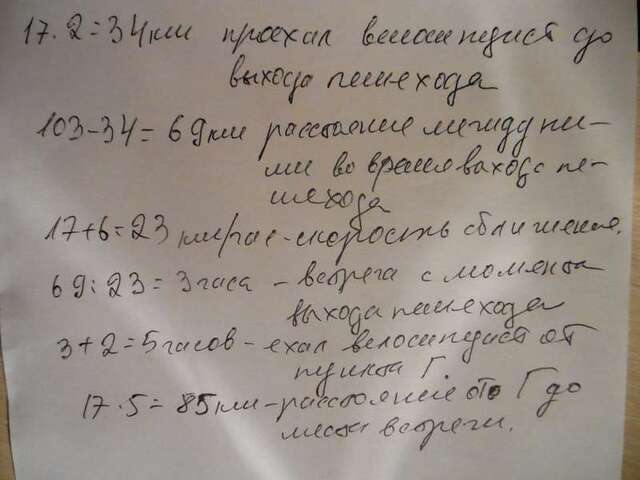 17·2=34км проехал велосипедист до
выхода пешехода
103-34=69км расстояние между ни-
ми во время выхода пе-
шехода
17+6=23 км/час-скорость сближения.
69:23=3часа - встреча с момента
выхода пешехода
3+2=5часов-ехал велосипедист от
пункта Г.
17·5=85км-расстояние от Г до
места встречи.